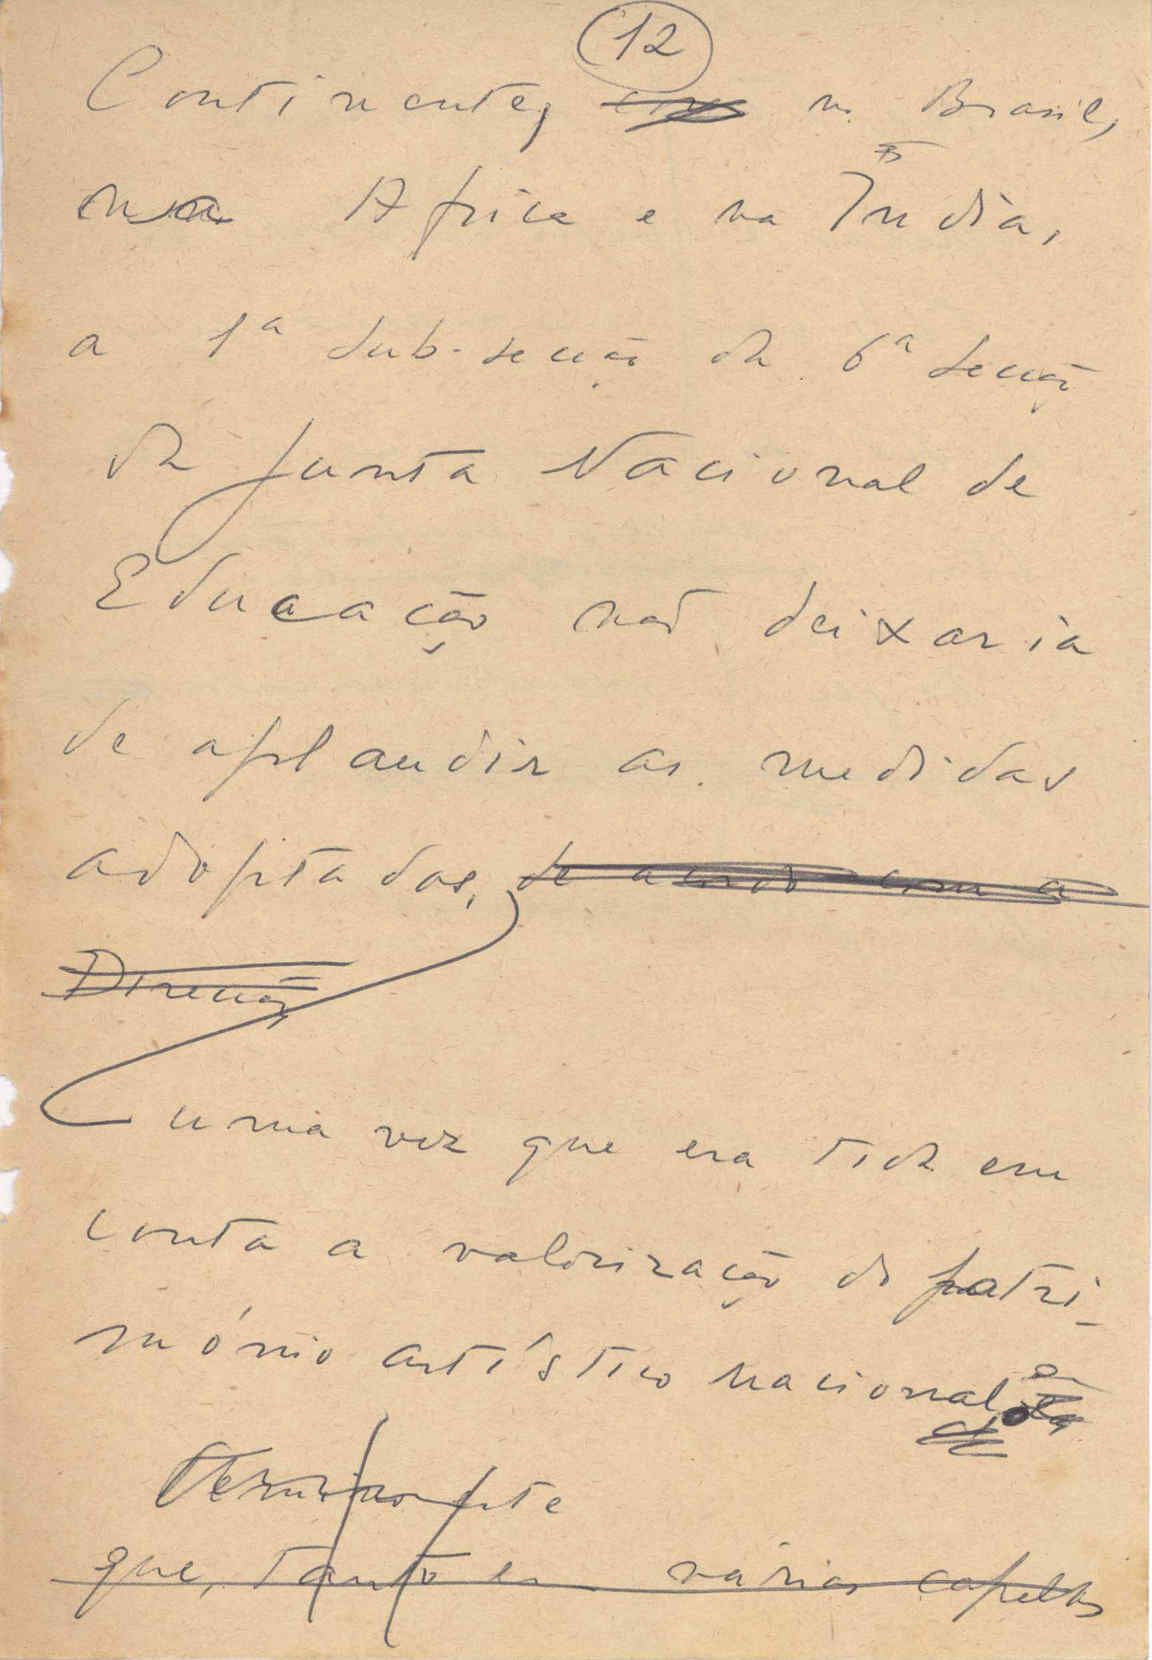 12
Continente, no Brasil,
na Africa e na India,
a 1ª sub-secção da 6ª secção
da Junta Nacional de
Educação não deixaria
de aplaudir as medidas
adoptadas, de acordo com a
Direcção
uma vez que era tida em
conta a valorização do patri-
mónio artístico nacional
que, tanto em várias capelas